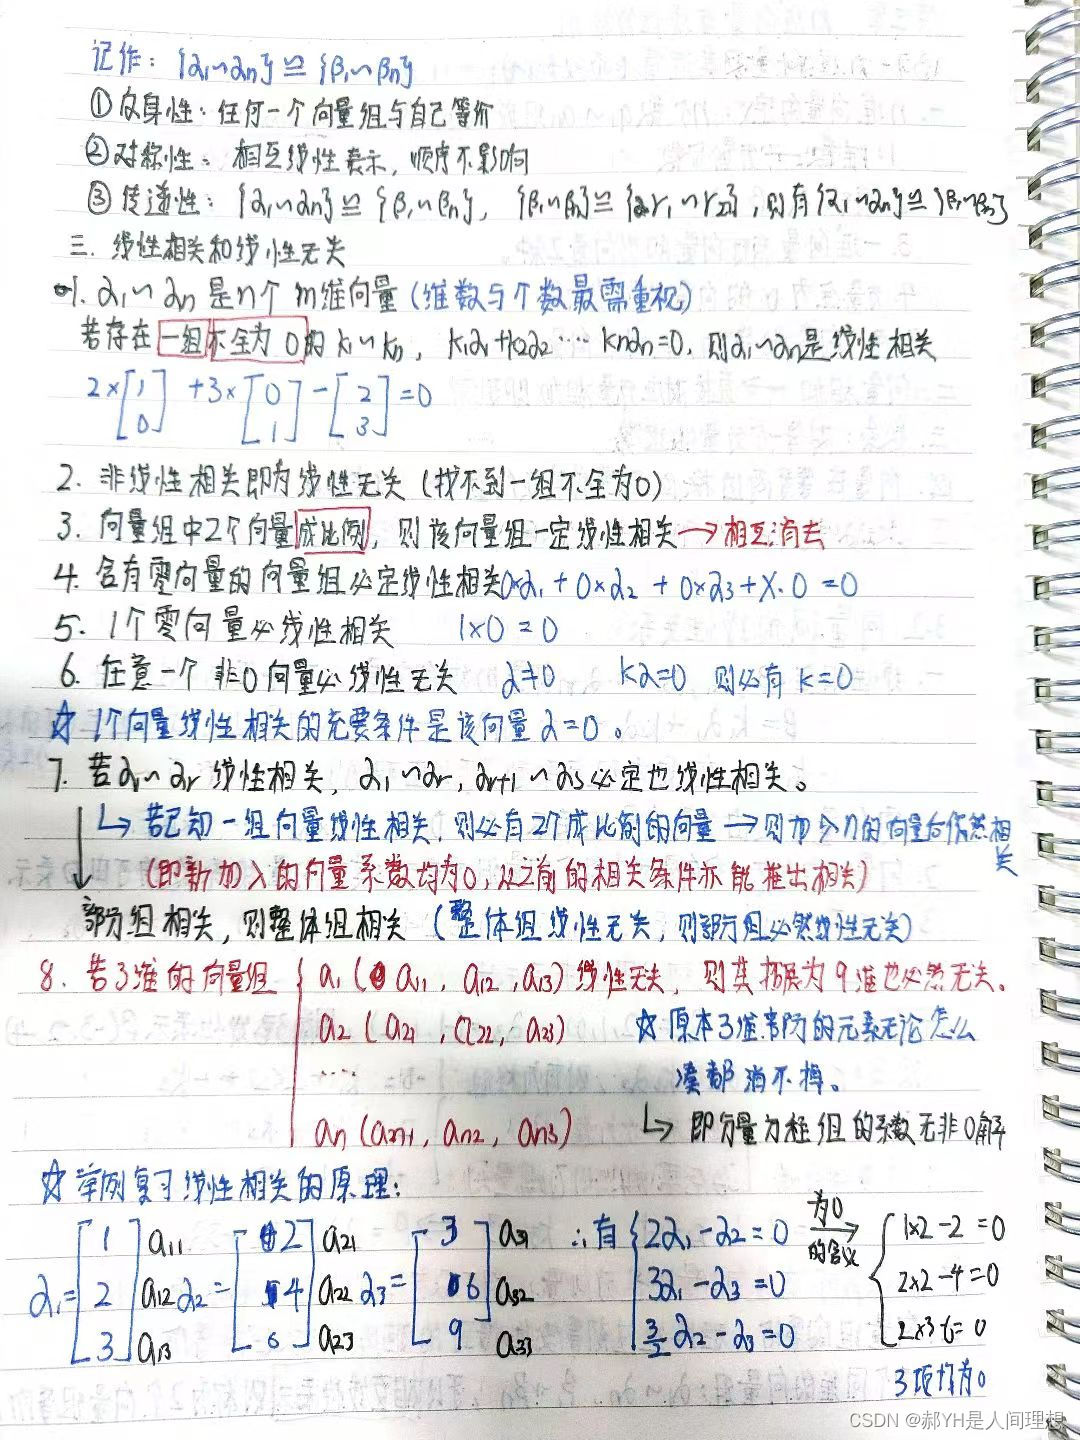 记作：{α₁~αn} ≌ {β₁~βn}
①反身性：任何一个向量组与自己等价
②对称性：相互线性表示，顺序不影响
③传递性：{α₁~αn} ≌ {β₁~βn}，{β₁~βn} ≌ {r₁~r₂}，则有{α₁~αn} ≌ {β₁~βn}
三. 线性相关和线性无关
1. α₁~αn 是n个 m维向量（维数与个数最需重视）
若存在一组不全为0的 k₁~kn，k₁α₁+k₂α₂ ···· knαn=0，则α₁~αn是线性相关
2×[1 0] +3×[0 1] -[2 3] =0
2. 非线性相关即为线性无关（找不到一组不全为0）
3. 向量组中2个向量成比例，则该向量组一定线性相关→相互消去
4. 含有零向量的向量组必定线性相关0×α₁ + 0×α₂ + 0×α₃ + X·0 = 0
5. 1个零向量必线性相关 1×0 = 0
6. 任意一个非0向量必线性无关 α≠0 kα=0 则必有 k=0
☆ 1个向量线性相关的充要条件是该向量 α=0。
7. 若α₁~αr 线性相关，α₁~αr，αr+1~αs必定也线性相关。
↳若已知一组向量线性相关，则必有2个成比例的向量→则加入n的向量后依然相关
（即新加入的向量系数均为0，以之前的相关条件亦能推出相关）
部分组相关，则整体组相关（整体组线性无关，则部分组必然线性无关）
8. 若3维的向量组 { a₁ ( a₁₁, a₁₂, a₁₃) 线性无关，则其拓展为9维也必然无关。
a₂ ( a₂₁, a₂₂, a₂₃) ☆ 原本3维部分的元素无论怎么
···· 凑都消不掉。
an (an1, an2, an3) ↳ 即分量方程组的系数无非0解
☆ 举例复习线性相关的原理：
α₁=[1 2 3] a₁₁ a₁₂ a₁₃ α₂=[2 4 6] a₂₁ a₂₂ a₂₃ α₃=[3 6 9] a₃₁ a₃₂ a₃₃ ∴有 { 2α₁-α₂=0 3α₁-α₃=0 3/2 α₂-α₃=0 为0的含义→ { 1×2-2=0 2×2-4=0 2×3-6=0
3项均为0
CSDN @郝YH是人间理想